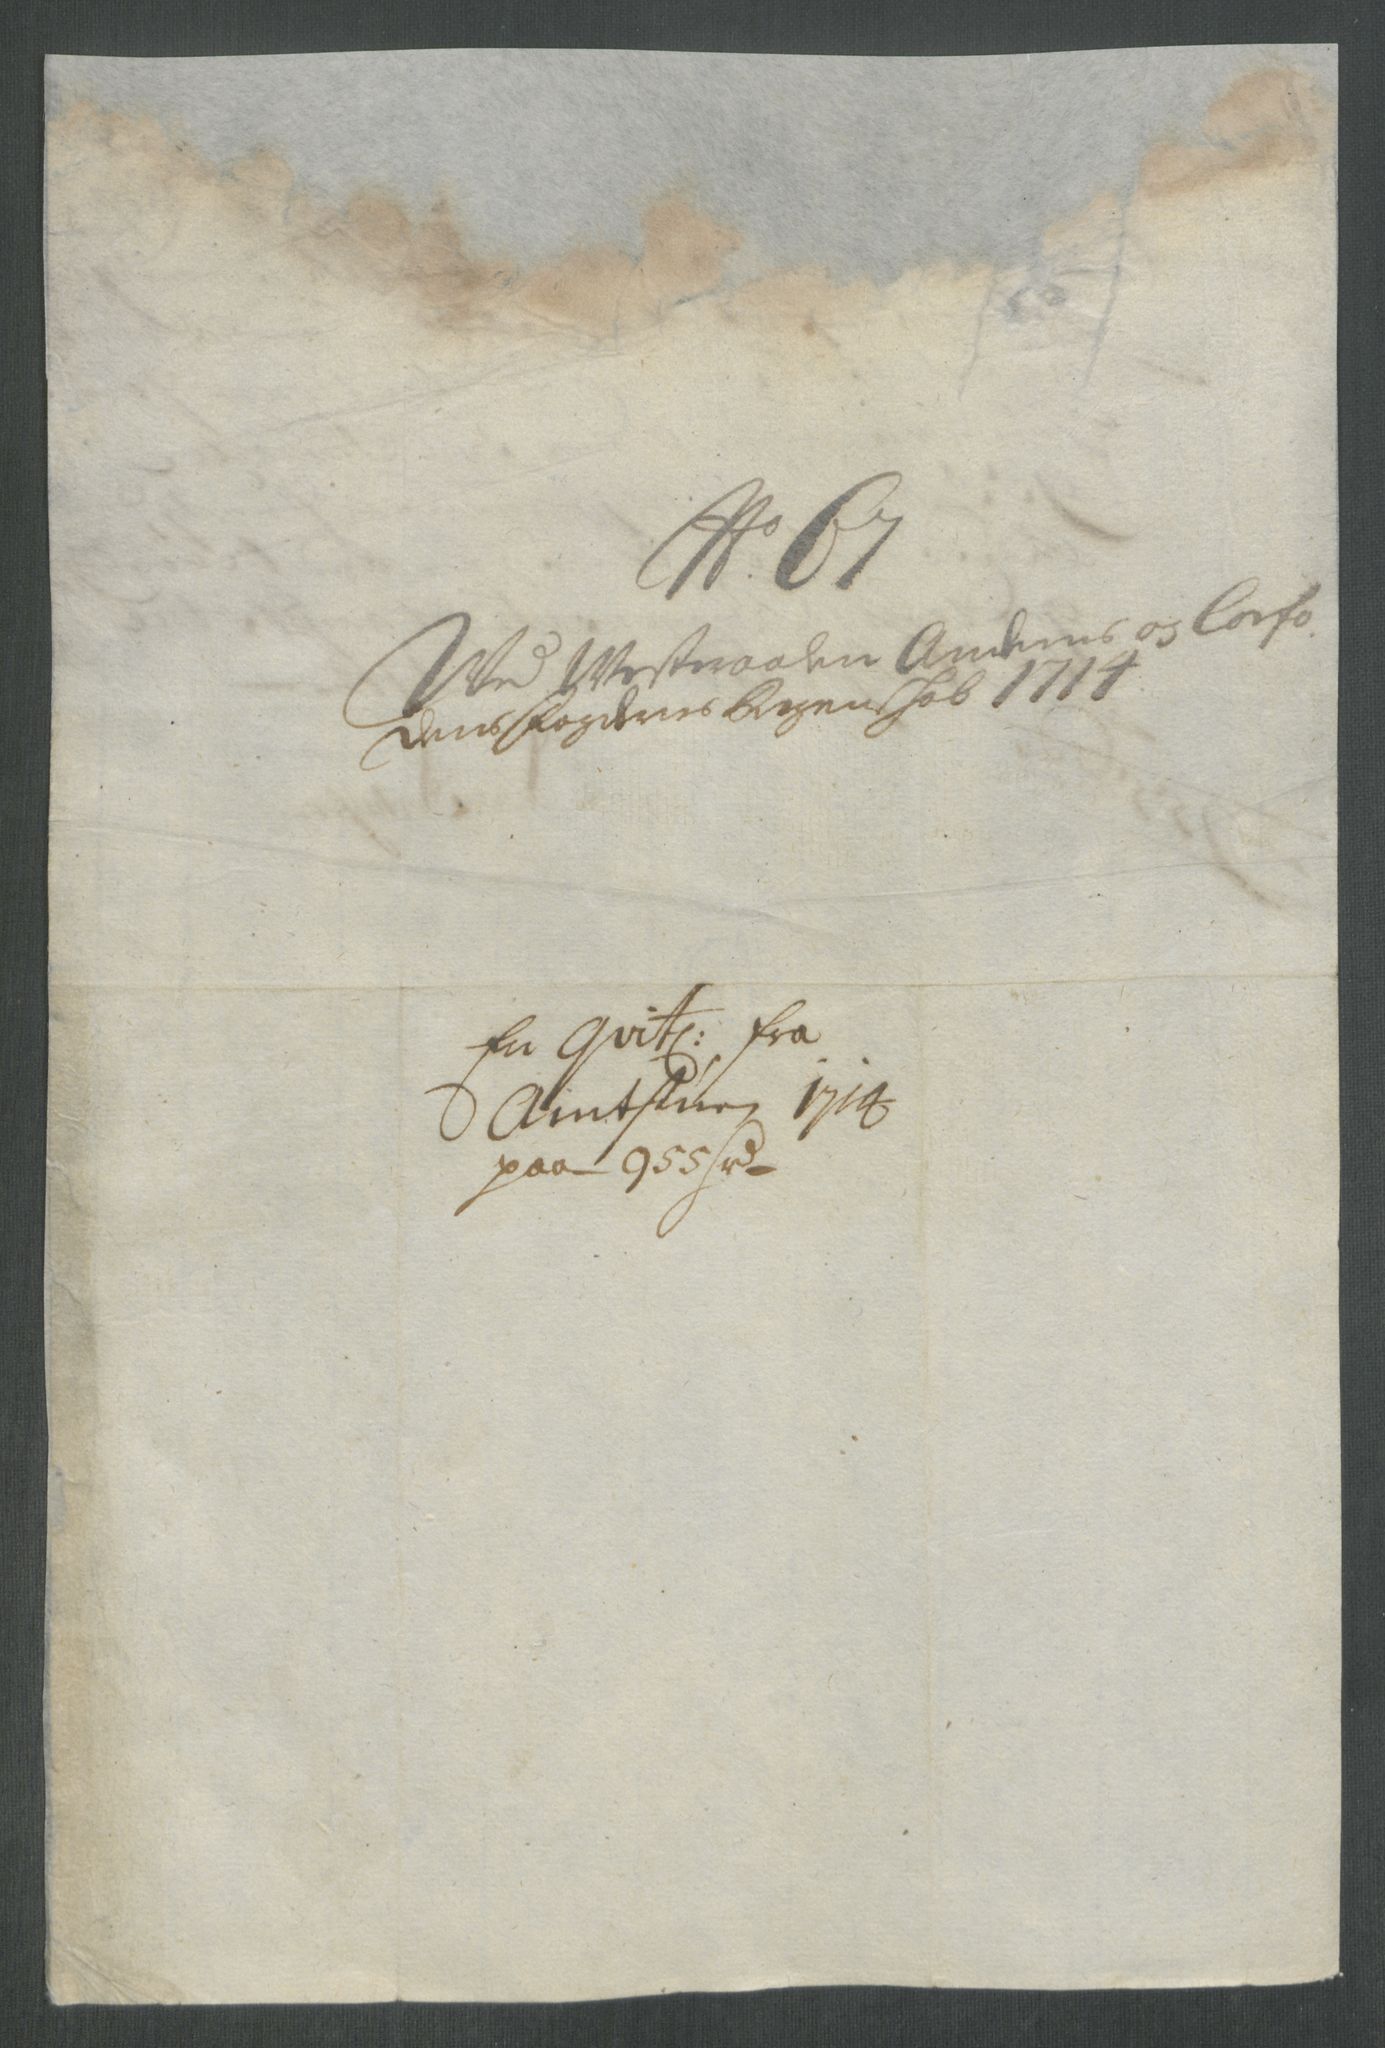 No. 67
Ved Westraalen Andenes og Lofo
dens Fogderies Regenskab 1714
En Qvit: fra
Amtstuen 1714
paa 955 rd